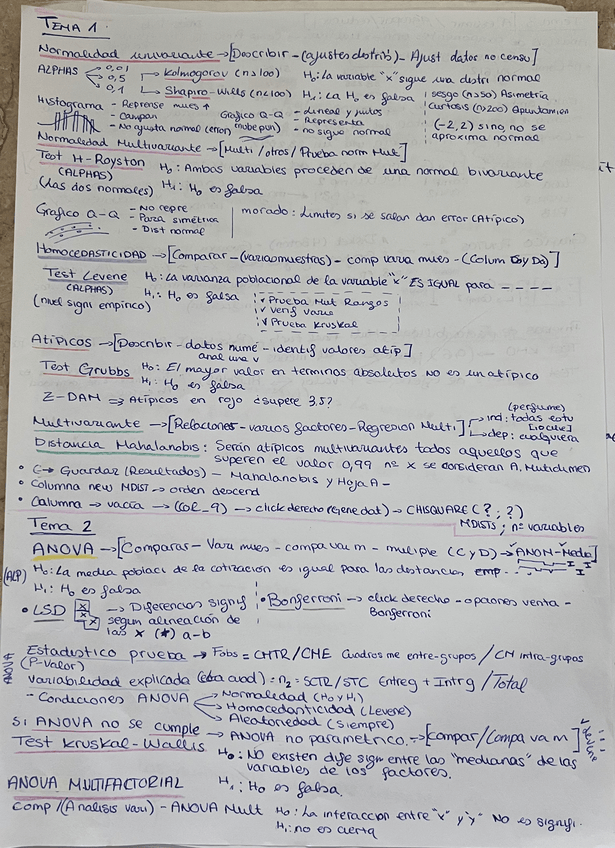 TEMA 1:
Normalidad univariante → [Describir - (ajustes distrib) - Ajust datos no censu]
ALPHAS 0,01 0,5 0,1
Kolmogorov (n≥100)
Shapiro - Wills (n≤100)
H0: La variable "x" sigue una distri normal
H1: La H0 es falsa
sesgo (n>50) Asimetría
curtosis (n>200) Apuntamien
(-2,2) sino, no se aproxima normal
Histograma - Reprense mues
- Campan
- No ajusta normal
Grafico Q-Q - Lineal y juntos
- Representa
- no sigue normal
Normalidad Multivariante → [Multi / otros / Prueba norm Mult]
Test H-Royston H0: Ambas variables proceden de una normal bivariante
(ALPHAS)
(Las dos normales) H1: H0 es falsa
Grafico Q-Q - No repre
- Para simétrica
- Dist normal
morado: Limites si se salan dan error (Atípico)
HOMOCEDASTICIDAD → [Comparar - (varias muestras) - comp varia mues - (Colum Co y Do)]
Test Levene H0: La varianza poblacional de la variable "x" ES IGUAL para - - - -
(ALPHAS) H1: H0 es falsa
(nivel signi empírico)
✓ Prueba Mult Rangos
✓ verif varia
✓ Prueba Kruskal
Atípicos → [Describir - datos numé - identif valores atip]
anal una v
Test Grubbs H0: El mayor valor en terminos absolutos no es un atípico
H1: H0 es falsa
Z-DAM ⇒ Atípicos en rojo ¿supere 3.5?
Multivariante → [Relaciones - varios factores - Regresion Multi]
(perfume)
ind: todas
dep: cualquiera
Distancia Mahalanobis: Serán atípicos multivariantes todos aquellos que
superen el valor 0,99 nº x se consideran A, Mutidimen
• Guardar (Resultados) - Mahalanobis y Hoja A -
• Columna new MDIST → orden descend
• Columna → vacía → (Col_9) → click derecho (gene dat) → CHISQUARE (?;?)
MDISTS; nº variables
Tema 2
ANOVA → [Comparar - Vari mues - compa va m - muliple (C y D) → ANOM - Media]
(ALP) H0: La media poblaci de la cotización es igual para las distancias emp.
H1: H0 es falsa
• LSD → Diferencias signif
según alineación de
las x (*) a-b
• Bonferroni → click derecho - opciones venta -
Bonferroni
ANOVA
Estadistico prueba → Fobs = CMTR/CME Cuadros me entre-grupos / CM intra-grupos
(P-valor)
Variabilidad explicada (eta cuad): n2 = SCTR/STC Entreg + Intrg / Total
- Condiciones ANOVA
Normalidad (H0 y H1)
Homocedanticidad (Levene)
Aleatoriedad (Siempre)
Si ANOVA no se cumple → ANOVA no parametrico → [compar/Compa va m]
Test Kruskal-Wallis H0: NO existen dife sign entre las "medianas" de las
variables de los factores.
H1: H0 es falsa.
ANOVA MULTIFACTORIAL
Comp / (Analisis vari) - ANOVA Mult H0: La interaccion entre "x" y "y" No es signifi.
H1: no es cierta